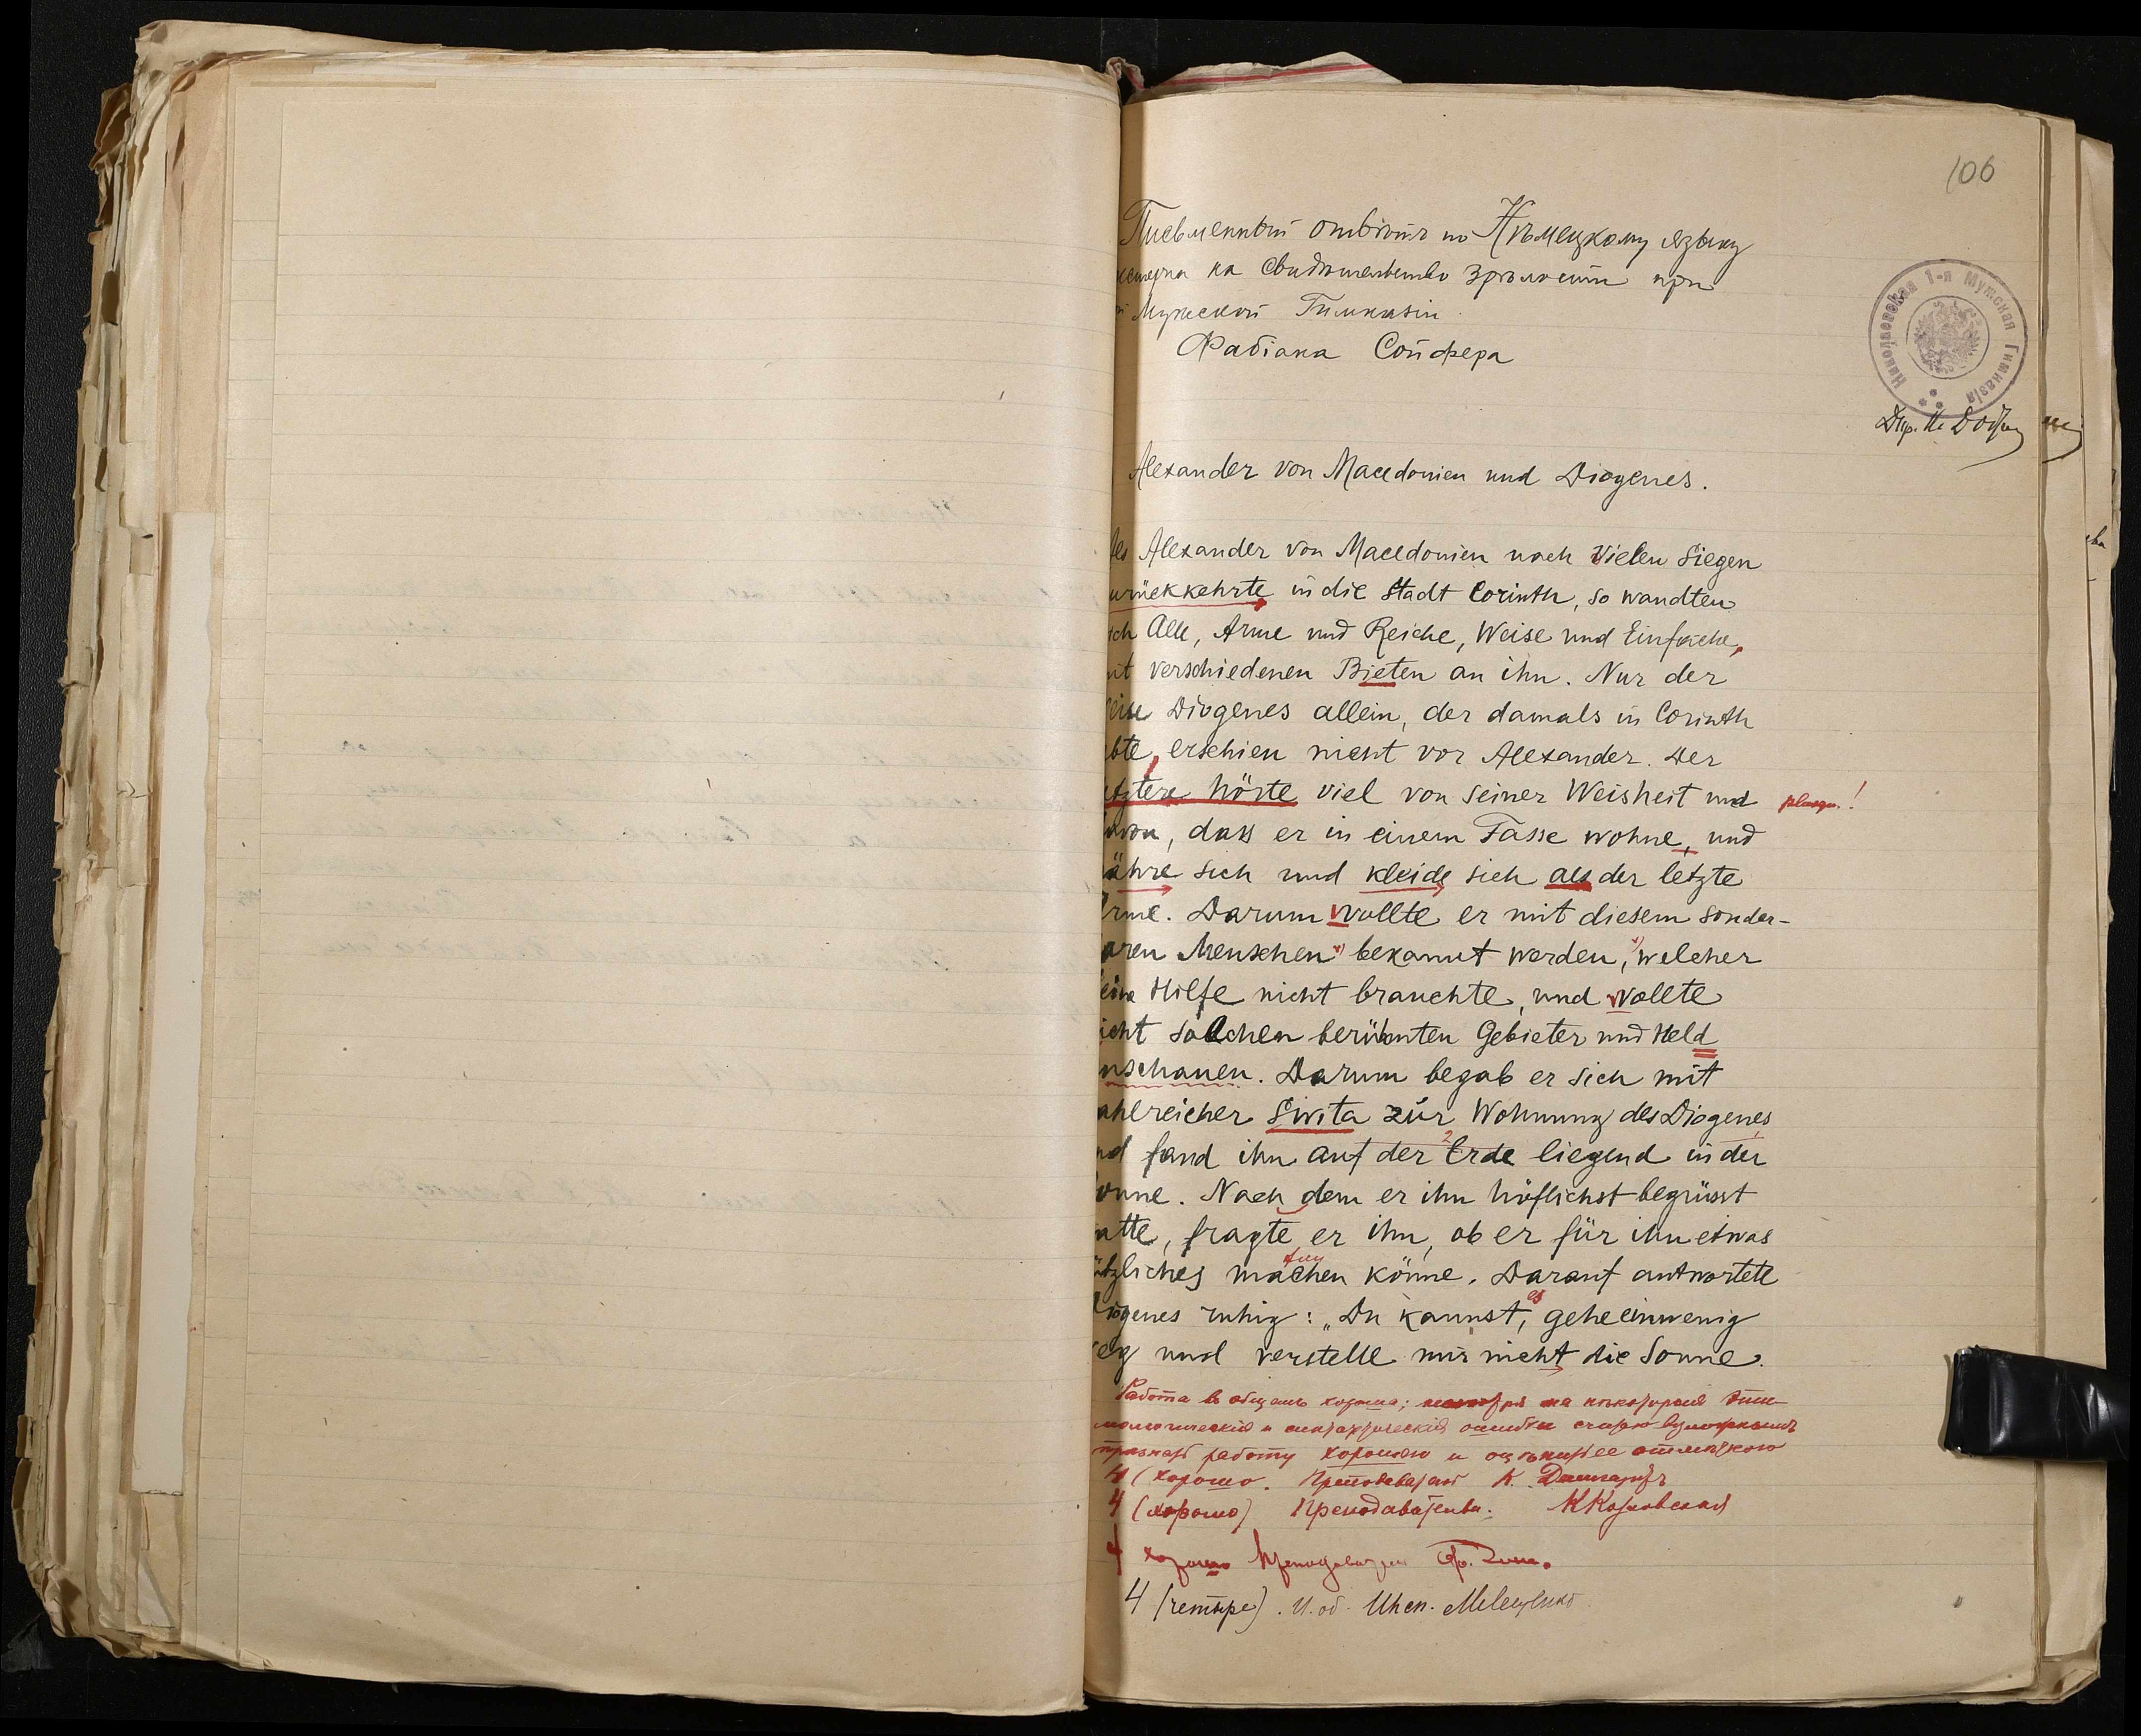 106
Письменный отвѣтъ по Нѣмецкому языку
на свидѣтельство зрѣлости при
Мужской Гимназіи
Фабіана Сойфера
Николаевская 1-я Мужская Гимназія
Дир.
Alexander von Macedonien und Diogenes.
Alexander von Macedonien nach vielen Siegen
urückkehrte in die Stadt Corinth, so wandten
ich Alle, Arme und Reiche, Weise und Einfache,
it verschiedenen Bieten an ihn. Nur der
eise Diogenes allein, der damals in Corinth
bte, erschien nicht vor Alexander. Der
etztere hörte viel von seiner Weisheit und plusqu.!
avon, dass er in einem Fasse wohne, und
ähre sich und kleide sich als der letzte
rme. Darum wollte er mit diesem sonder-
aren Menschen bekannt werden, welcher
eine Hilfe nicht brauchte, und wollte
icht solchen berühmten Gebieter und Held
nschauen. Darum begab er sich mit
ahlreicher Swita zur Wohnung des Diogenes
nd fand ihn auf der Erde liegend in der
onne. Nach dem er ihn höflichst begrüsst
atte, fragte er ihn, ob er für ihn etwas
ützliches machen könne. Darauf antwortete
iogenes ruhig: „Du kannst, es gehe einwenig
eg und verstelle mir nicht die Sonne.
Работа въ общемъ хороша; несмотря на нѣкоторыя эти-
мологическія и синтаксическія ошибки считаю возможнымъ
признать работу хорошею и оцѣниваю ее отмѣткою
4 (хорошо. Преподаватель К.
4 (хорошо) Преподаватель:
4 хорошо Преподаватель
4 (четыре). И. об. Инсп.